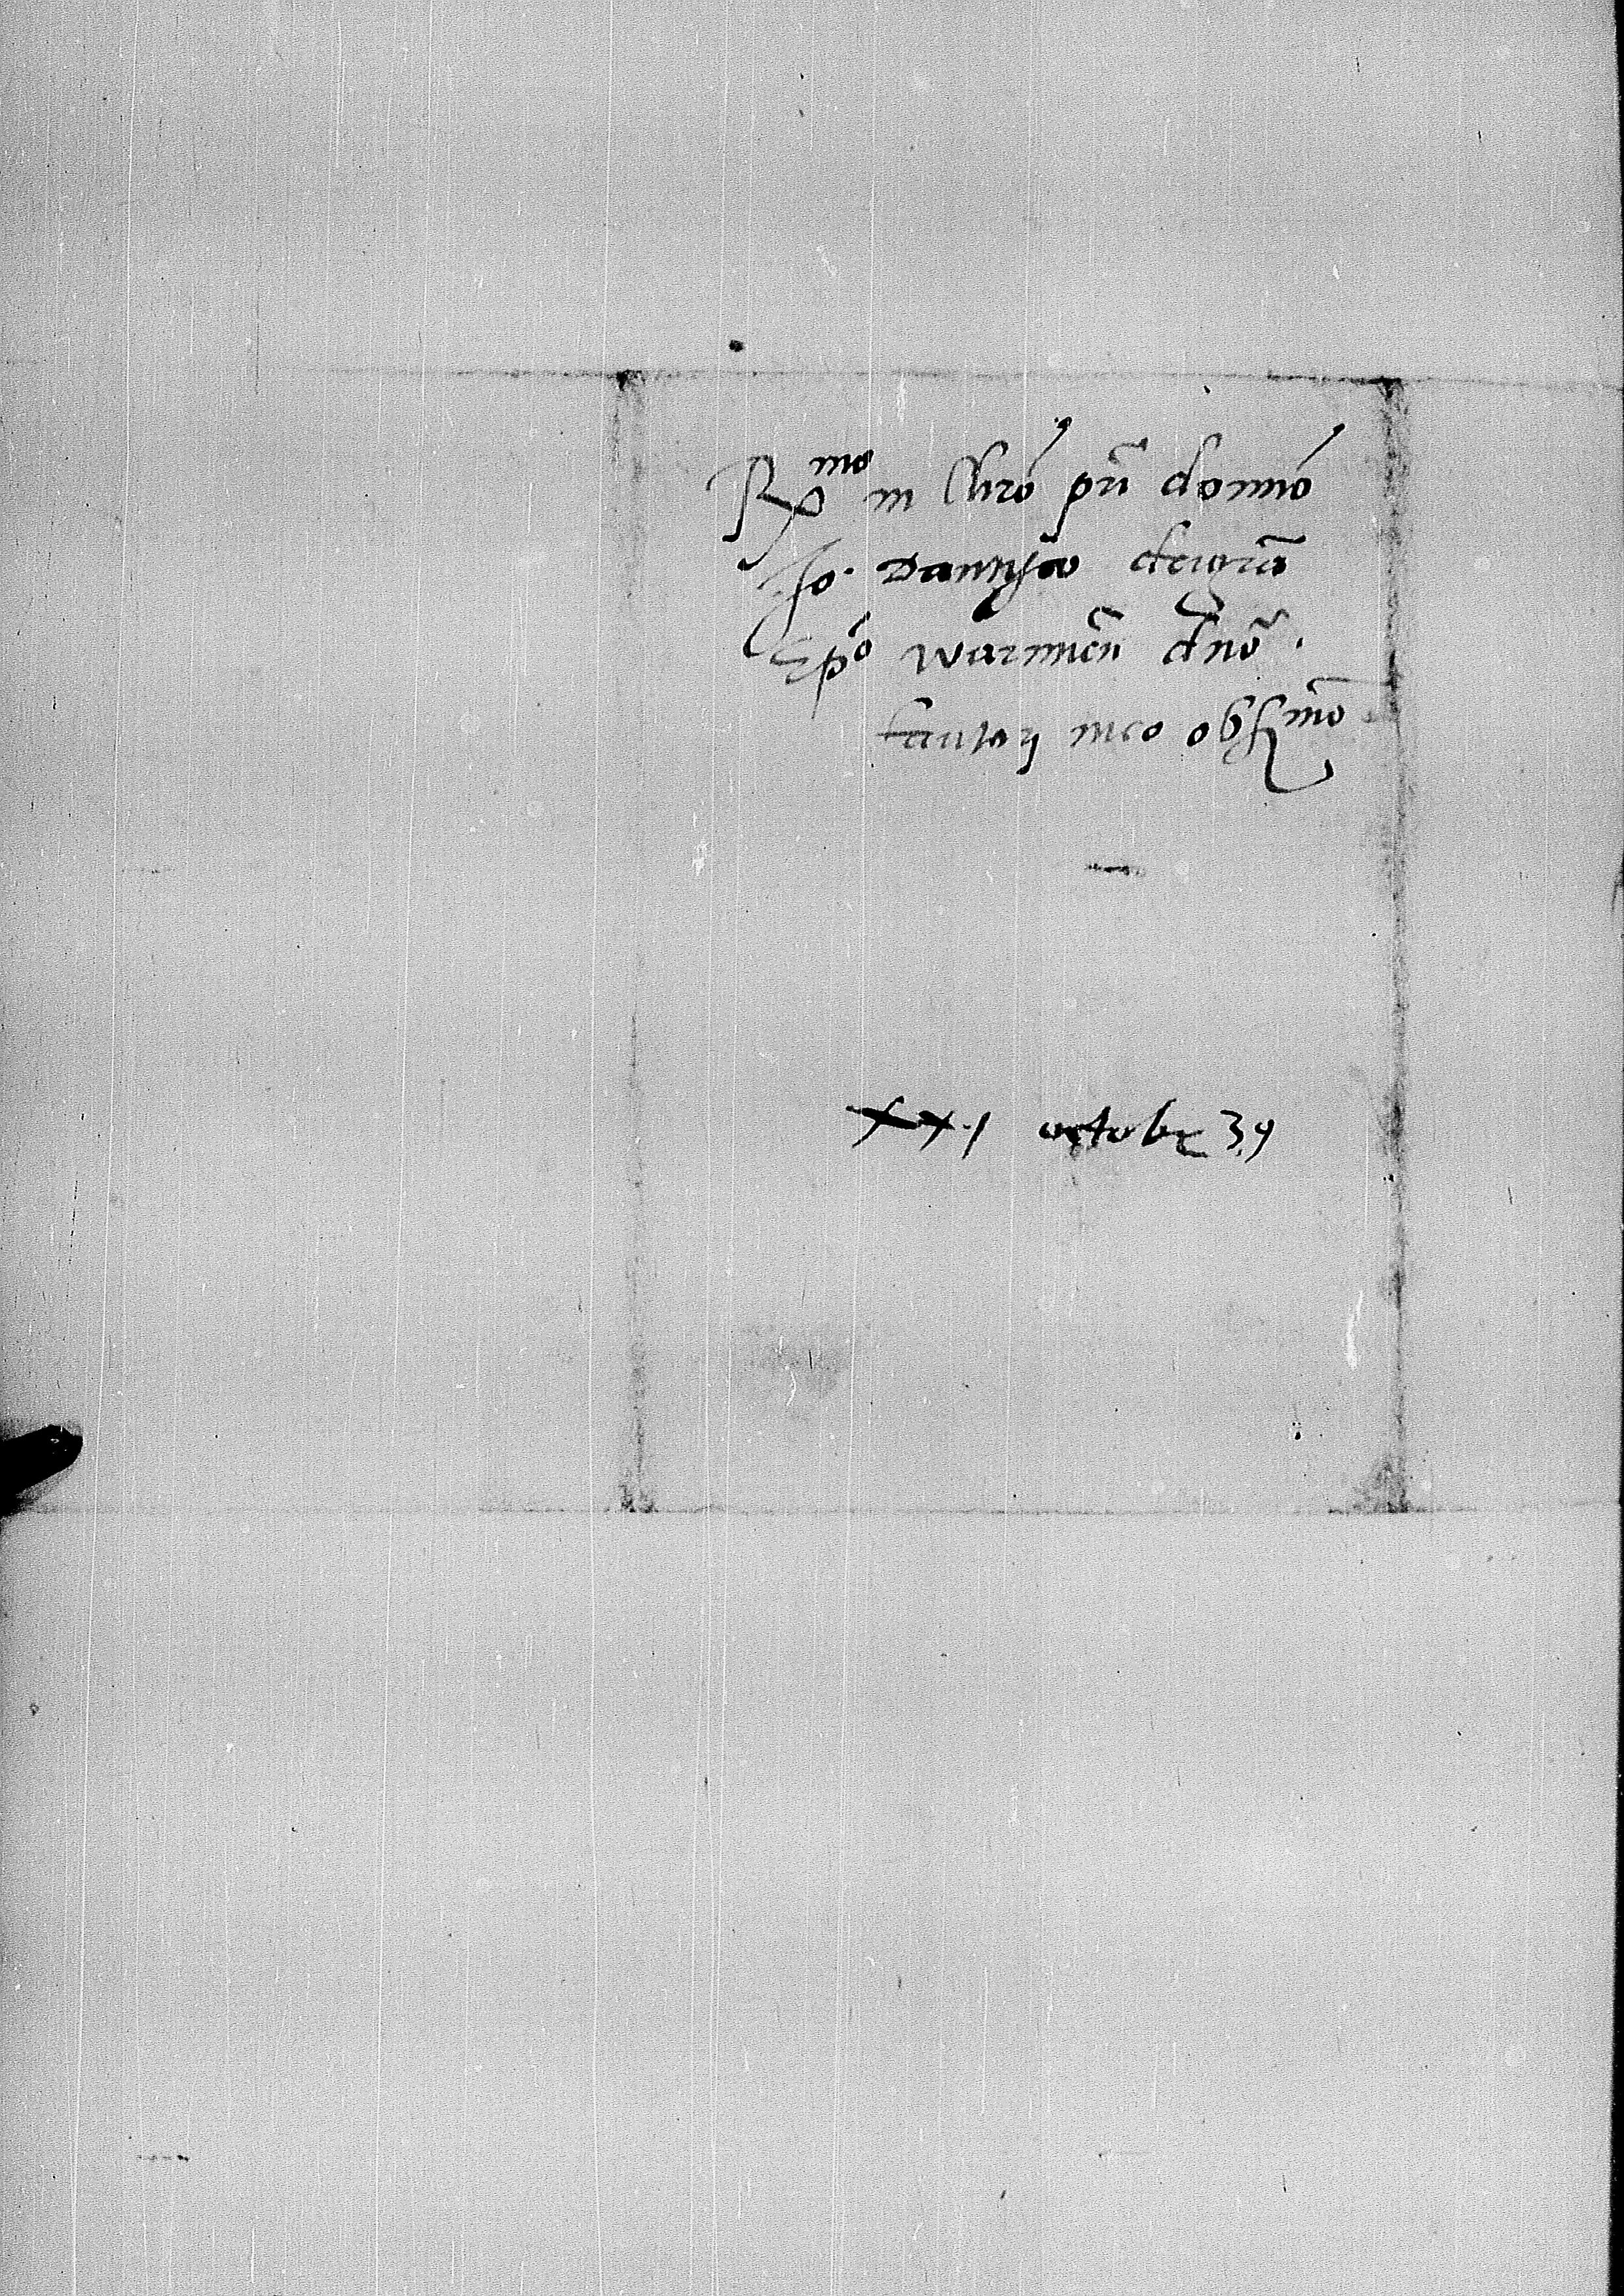 Rᵐᵒ in Chro pri domino
Jo. Dantisco dei gra
Epo Warmien dno
fautori meo obserᵐᵒ
XXI octobr 39